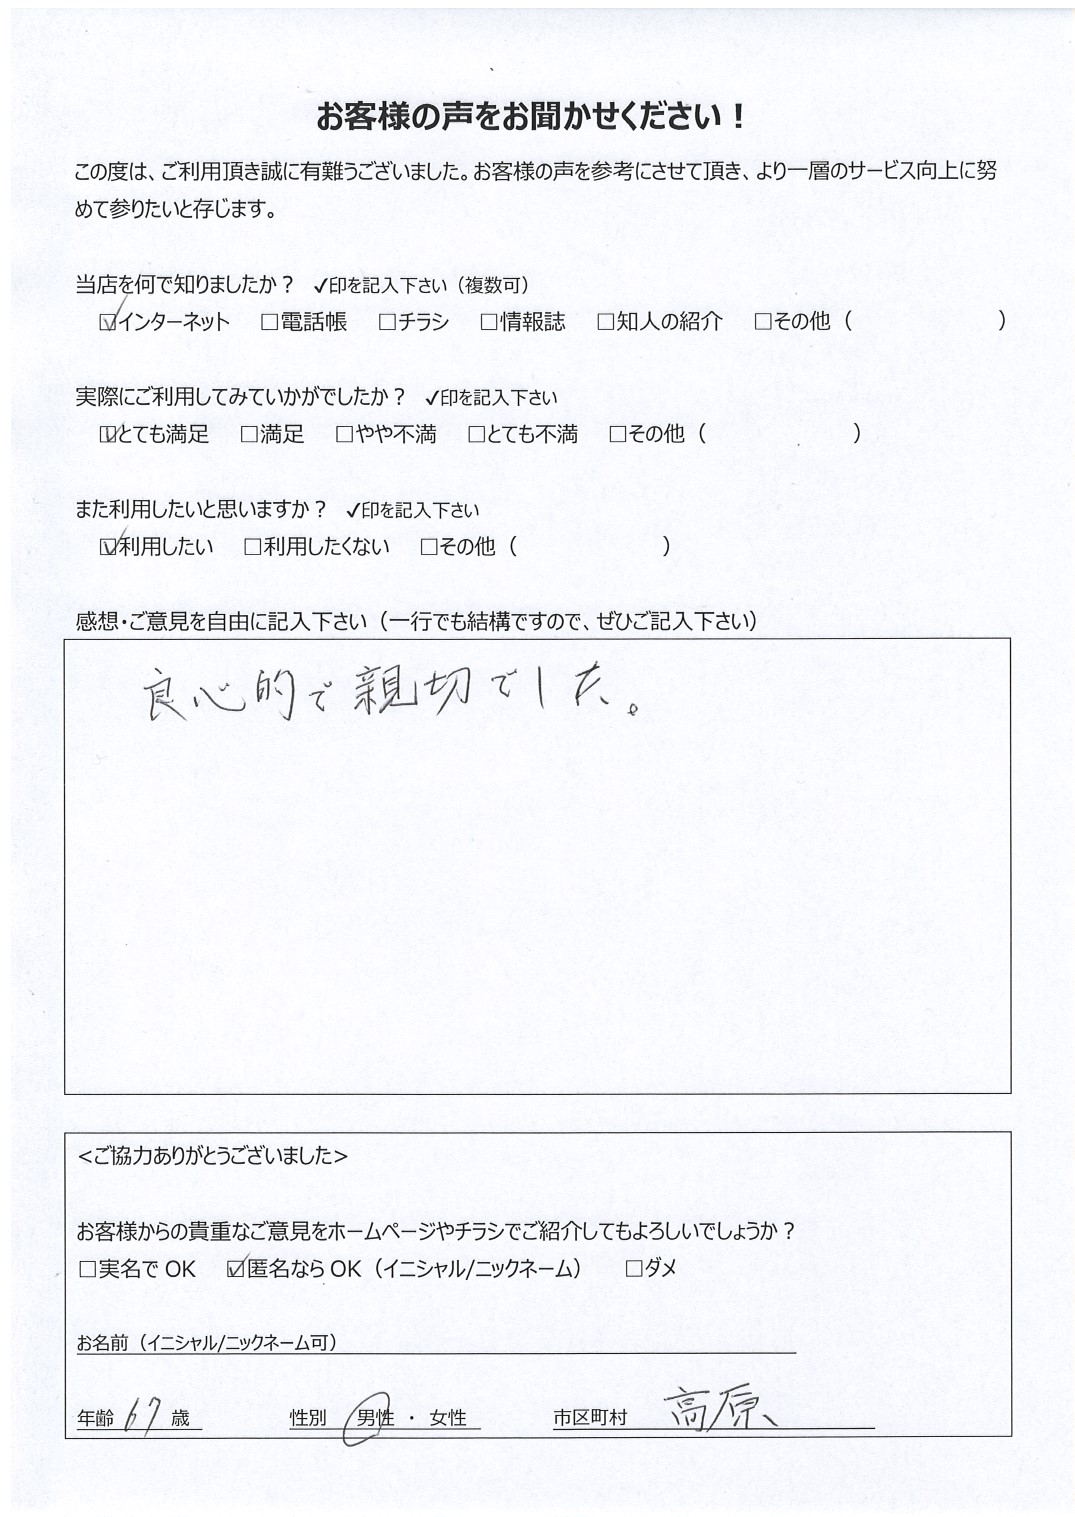 お客様の声をお聞かせください！
この度は、ご利用頂き誠に有難うございました。お客様の声を参考にさせて頂き、より一層のサービス向上に努
めて参りたいと存じます。
当店を何で知りましたか？ ✓印を記入下さい（複数可）
☑インターネット □電話帳 □チラシ □情報誌 □知人の紹介 □その他（ ）
実際にご利用してみていかがでしたか？ ✓印を記入下さい
☑とても満足 □満足 □やや不満 □とても不満 □その他（ ）
また利用したいと思いますか？ ✓印を記入下さい
☑利用したい □利用したくない □その他（ ）
感想・ご意見を自由に記入下さい（一行でも結構ですので、ぜひご記入下さい）
良心的で親切でした。
<ご協力ありがとうございました>
お客様からの貴重なご意見をホームページやチラシでご紹介してもよろしいでしょうか？
□実名で OK ☑匿名なら OK（イニシャル/ニックネーム） □ダメ
お名前（イニシャル/ニックネーム可）
年齢 67 歳 性別 男性 ・ 女性 市区町村 高原